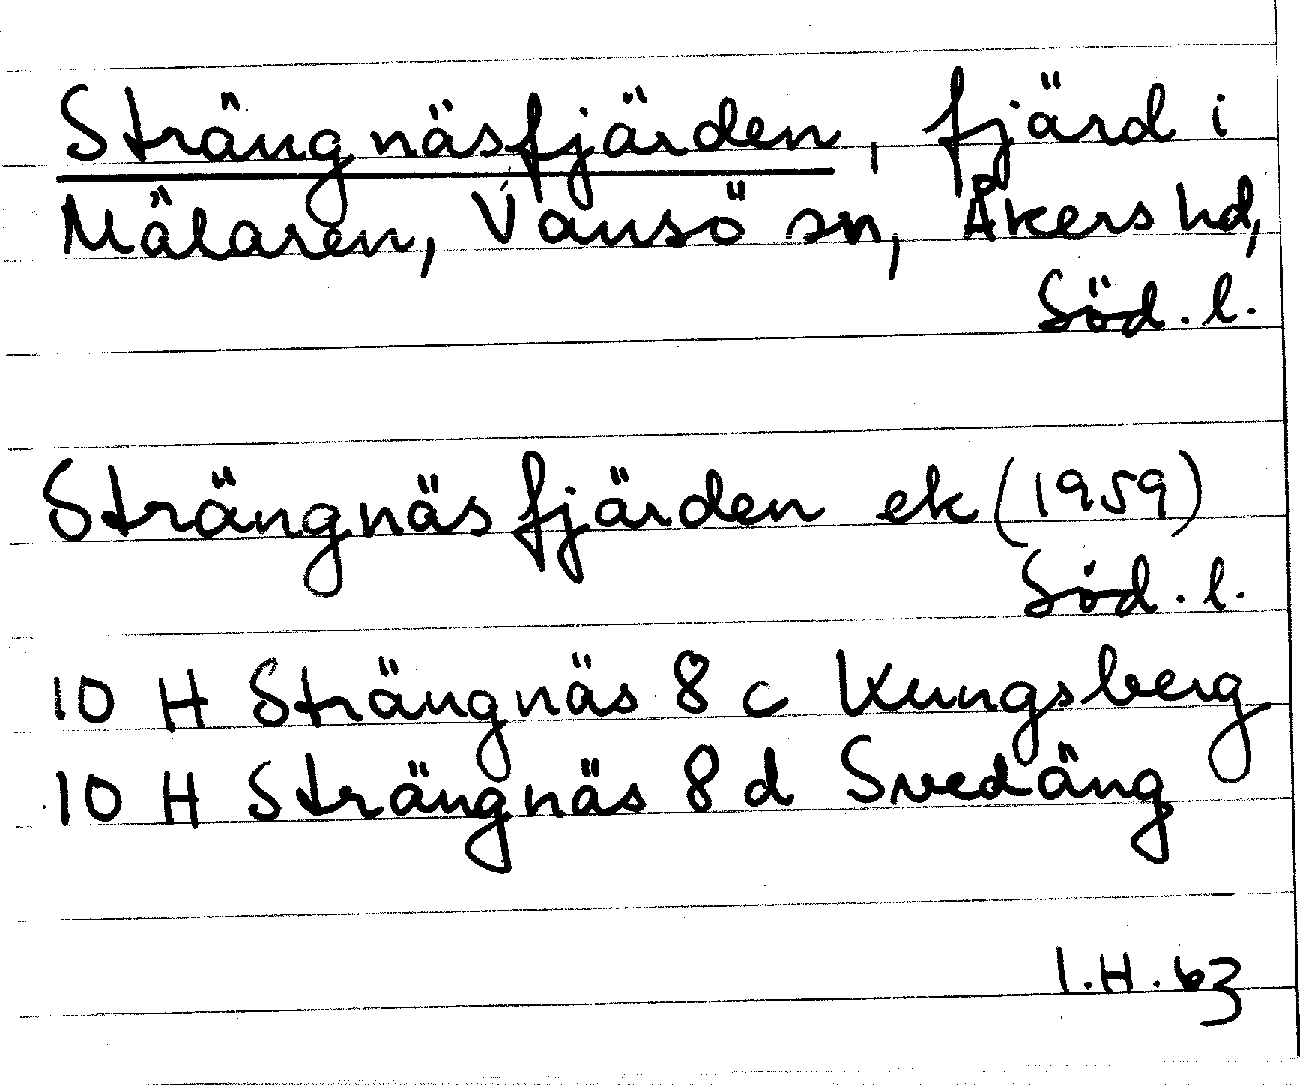 Strängnäsfjärden, fjärd i
Mälaren, Vansö sn, Åkers hd,
Söd. l.
Strängnäsfjärden ek (1959)
Söd. l.
10 H Strängnäs 8 c Kungsberg
10 H Strängnäs 8 d Svedäng
I.H. 63